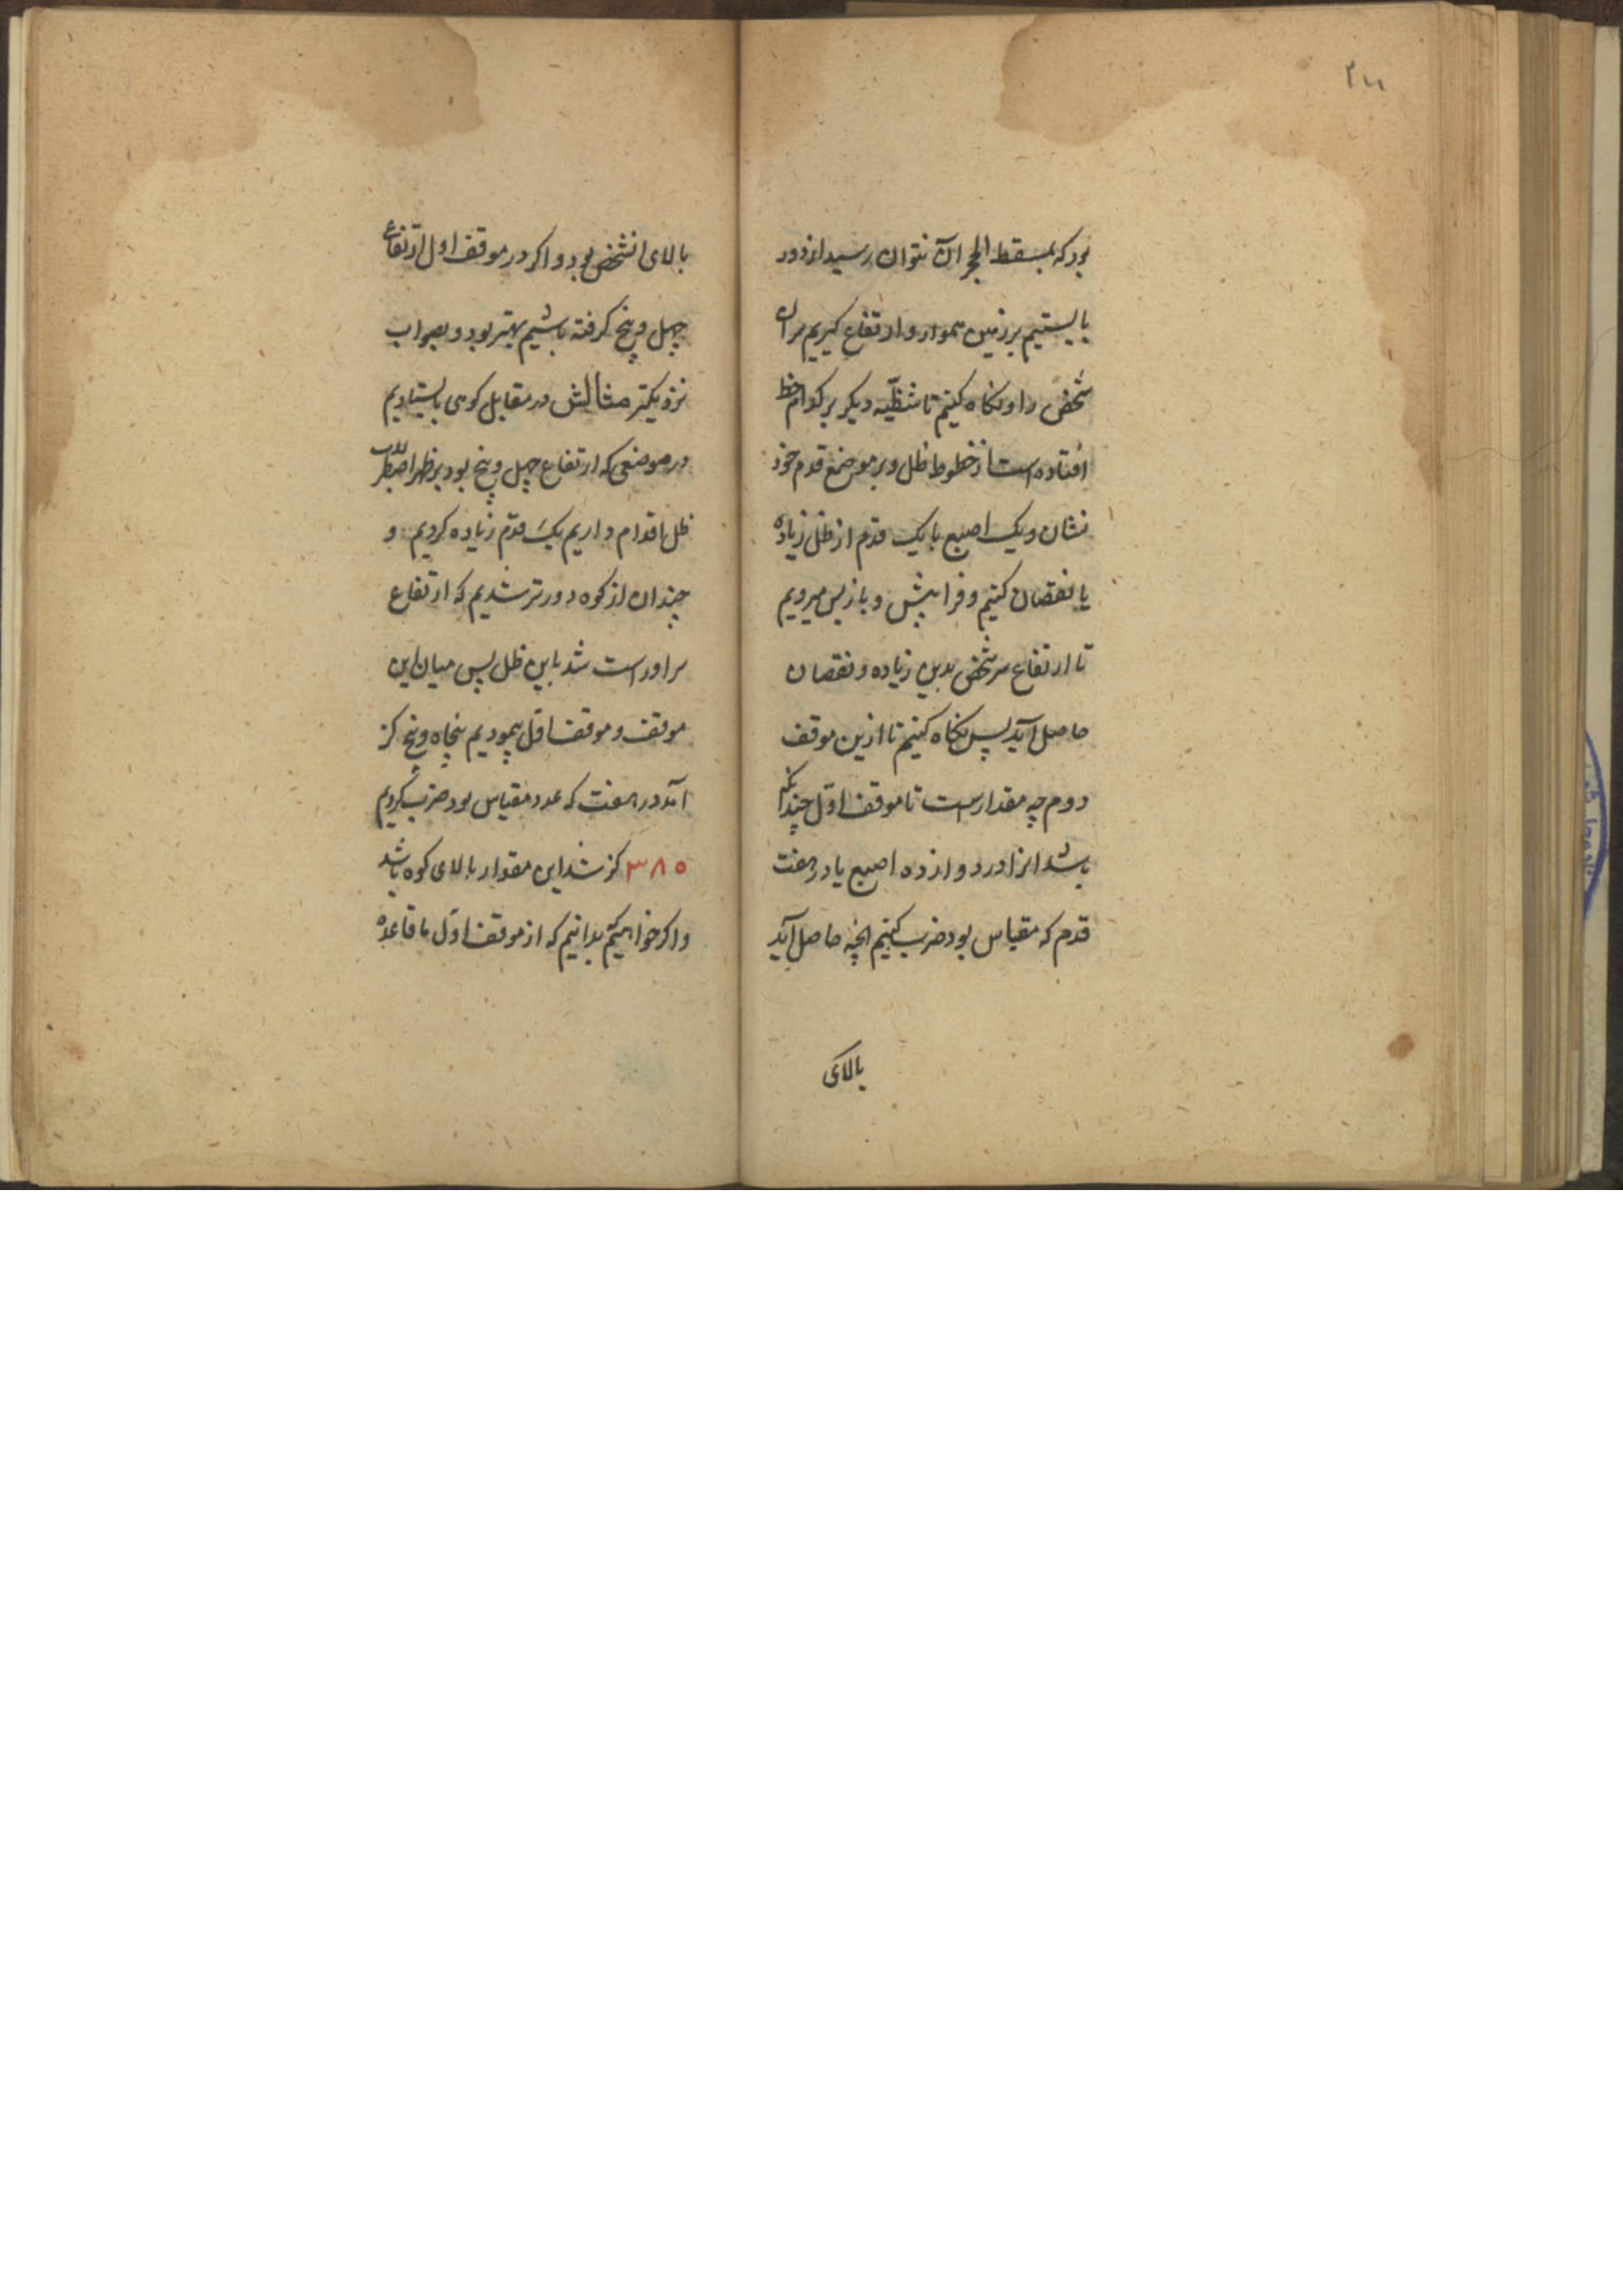 بود که بمسقط الحجر آن نتوان رسید از دور
بایستیم بر زمین هموار و ارتفاع گیریم سر ان
شخص را و نکاه کنیم تا شظیّه دیکر بر کدام خط
افتاده است از خطوط ظل و بر موضع قدم خود
نشان و یک اصبع یا یک قدم از ظل زیاده
یا نقصان کنیم و فرا پیش و باز پس میرویم
تا ارتفاع سر شخص بدین زیاده و نقصان
حاصل آید پس نکاه کنیم تا ازین موقف
دوم چه مقدارست تا موقف اوّل چندانکه
باشد انرا در دوازده اصبع یا در هفت
قدم که مقیاس بود ضرب کنیم انچه حاصل آید
بالای
بالای انشخص بود و اکر در موقف اول ارتفاع
چهل و پنج کرفته باشیم بهتر بود و بصواب
نزدیکتر مثالش در مقابل کوهی بایستادیم
در موضعی که ارتفاع چهل و پنج بود بر ظهر اصطرلاب
ظل اقدام داریم یک قدم زیاده کردیم و
چندان از کوه دورتر شدیم که ارتفاع
سر او راست شد باین ظل پس میان این
موقف و موقف اوّل پیمودیم پنجاه و پنج کز
آمد در هفت که عدد مقیاس بود ضرب کردیم
۳۸۵ کز شد این مقدار بالای کوه باشد
و اکر خواهیم که بدانیم که از موقف اوّل تا قاعده